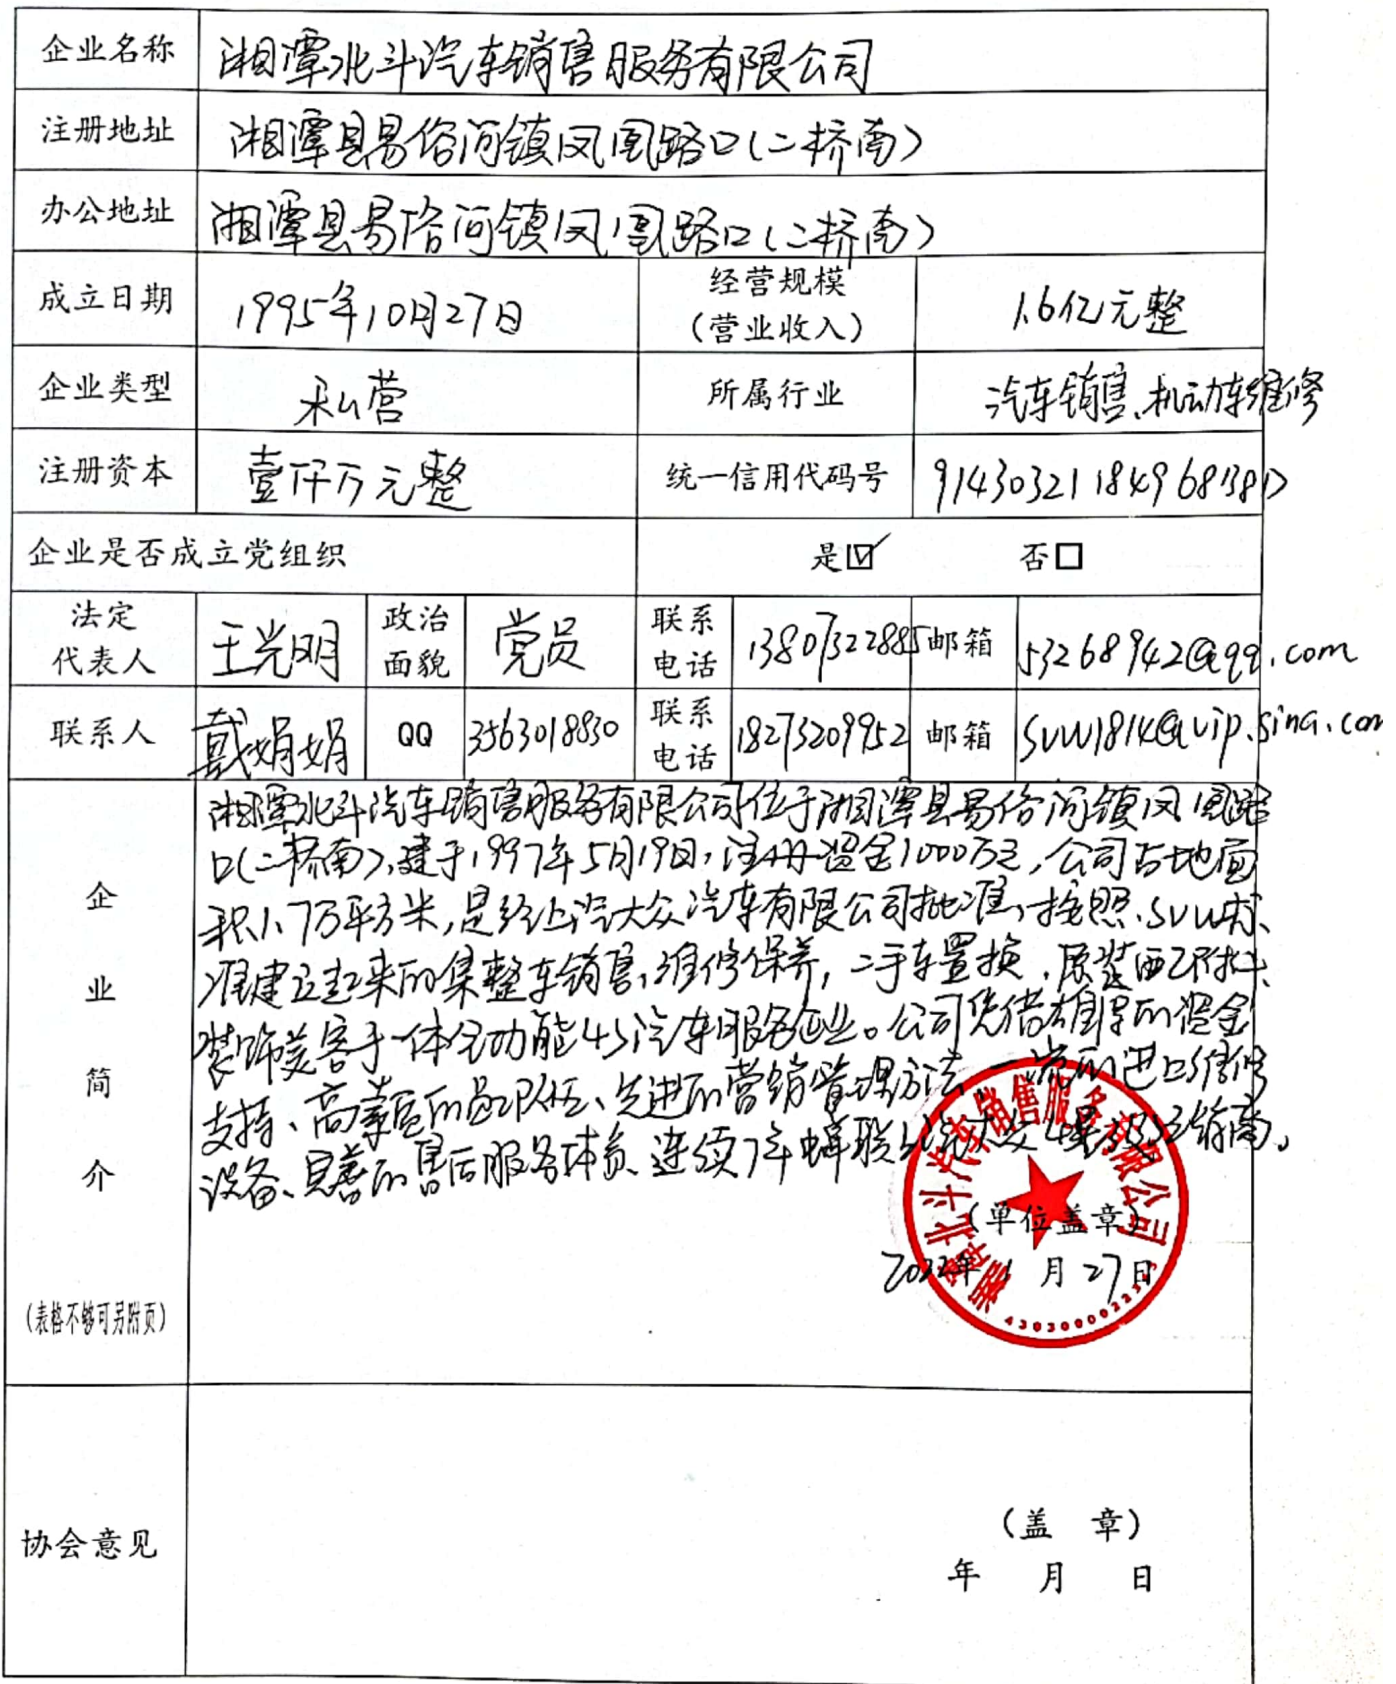 企业名称 湘潭北斗汽车销售服务有限公司
注册地址 湘潭县易俗河镇凤凰路口(二桥南)
办公地址 湘潭县易俗河镇凤凰路口(二桥南)
成立日期 1995年10月27日 经营规模(营业收入) 1.6亿元整
企业类型 私营 所属行业 汽车销售、机动车维修
注册资本 壹仟万元整 统一信用代码号 91430321184968138D
企业是否成立党组织 是☑ 否□
法定代表人 王光明 政治面貌 党员 联系电话 13807322885 邮箱 53268942@qq.com
联系人 戴娟娟 QQ 3563018830 联系电话 18273209952 邮箱 SVW1814@vip.sina.com
企业简介
(表格不够可另附页)
湘潭北斗汽车销售服务有限公司位于湘潭县易俗河镇凤凰路
口(二桥南),建于1997年5月19日,注册资金1000万元,公司占地面
积1.7万平方米,是经上汽大众汽车有限公司批准、按照SVW标
准建立起来的集整车销售、维修保养,二手车置换、原装配附件、
装饰美容于一体全功能4S汽车服务企业。公司凭借雄厚的资金
支持、高素质的员工队伍、先进的营销管理方法、一流的进口维修
设备、完善的售后服务体系、连续7年蝉联上汽大众
湘潭北斗汽车销售服务有限公司
(单位盖章)
2022年1月27日
协会意见
(盖 章)
年 月 日